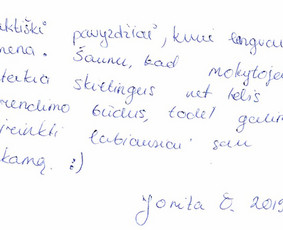 aktiški pavyzdžiai, kurie lengvai
mena. Šaunu, kad mokytoja
teikia skirtingus net kelis
rendimo būdus, todėl galim
irinkti labiausiai sau
kamą. :)
Jonita E. 2019